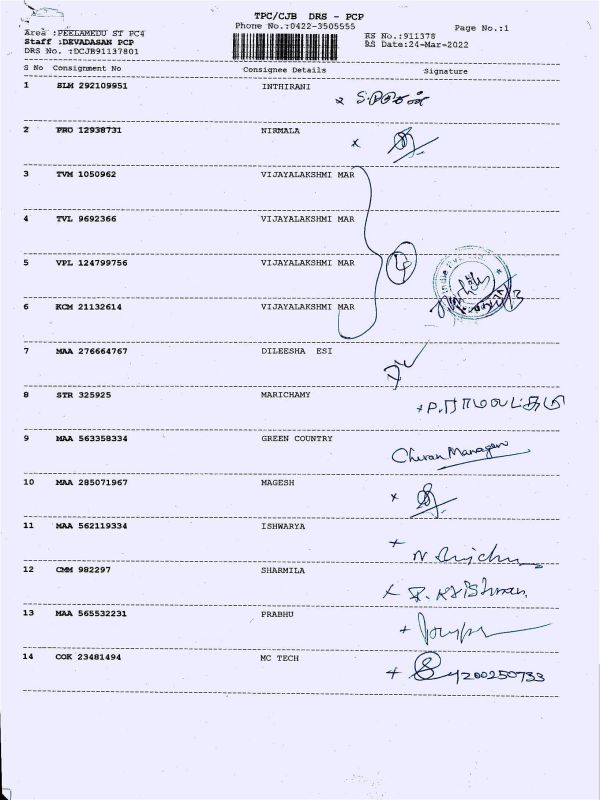 TPC/CJB DRS - PCP
Phone No.:0422-3505555
Page No.:1
Area :PEELAMEDU ST PC4
RS No.:911378
Staff :DEVADASAN PCP
RS Date:24-Mar-2022
DRS No. :DCJB91137801
S No Consignment No Consignee Details Signature
1 SLM 292109951 INTHIRANI
2 PRO 12938731 NIRMALA
3 TVM 1050962 VIJAYALAKSHMI MAR
4 TVL 9692366 VIJAYALAKSHMI MAR
5 VPL 124799756 VIJAYALAKSHMI MAR 4
6 KCM 21132614 VIJAYALAKSHMI MAR
7 MAA 276664767 DILEESHA ESI
8 STR 325925 MARICHAMY
9 MAA 563358334 GREEN COUNTRY Chiran Manager
10 MAA 285071967 MAGESH
11 MAA 562119334 ISHWARYA
12 CMM 982297 SHARMILA
13 MAA 565532231 PRABHU
14 COK 23481494 MC TECH